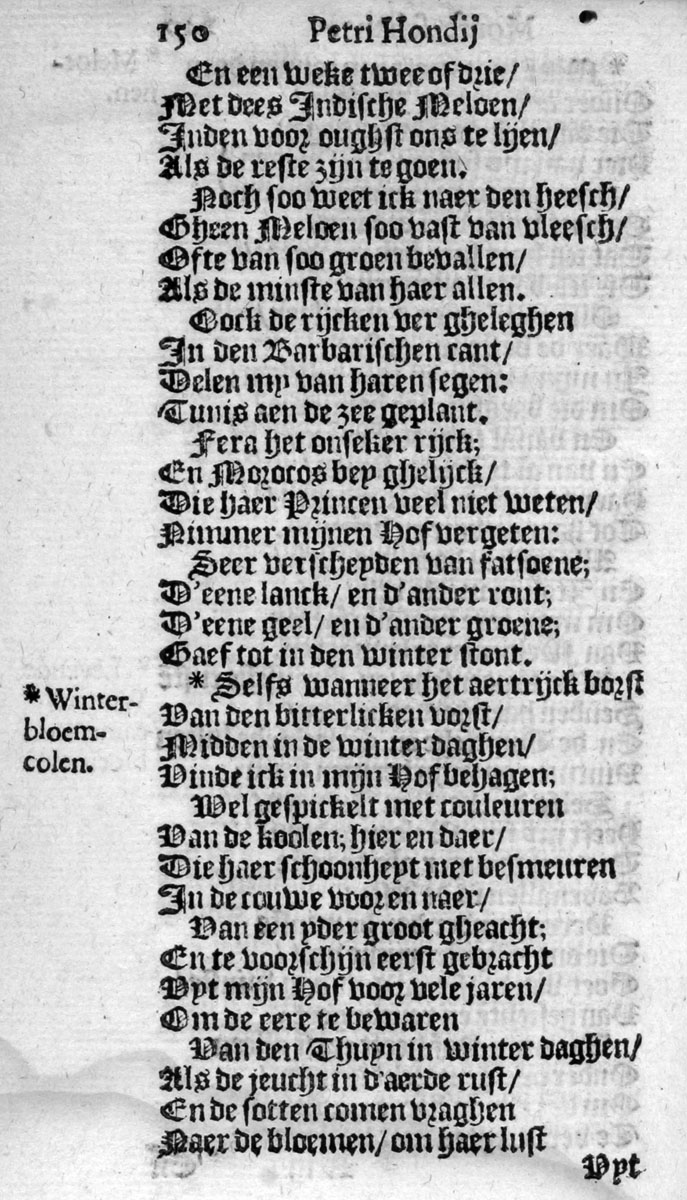 150 Petri Hondij
En een weke twee of drie/
Met dees Indische Meloen/
Inden voor oughst ons te lijen/
Als de reste zijn te goen.
Noch soo weet ick naer den heesch/
Gheen Meloen soo vast van vleesch/
Ofte van soo groen bevallen/
Als de minste van haer allen.
Oock de rijcken ver gheleghen
In den Barbarischen cant/
Delen my van haren segen:
Tunis aen de zee geplant.
Fera het onseker rijck;
En Morocos bey ghelijck/
Die haer Princen veel niet weten/
Nimmer mijnen Hof vergeten:
Seer verscheyden van fatsoene;
D'eene lanck/ en d'ander ront;
D'eene geel/ en d'ander groene;
Gaef tot in den winter stont.
* Selfs wanneer het aertrijck borst
* Winter-
bloem-
colen.
Van den bitterlicken vorst/
Midden in de winter daghen/
Vinde ick in mijn Hof behagen;
Wel gespickelt met couleuren
Van de koolen; hier en daer/
Die haer schoonheyt niet besmeuren
In de couwe voor en naer/
Van een yder groot gheacht;
En te voorschijn eerst gebracht
Vyt mijn Hof voor vele jaren/
Om de eere te bewaren
Van den Thuyn in winter daghen/
Als de jeucht in d'aerde rust/
En de sotten comen vraghen
Naer de bloemen/ om haer lust
Vyt